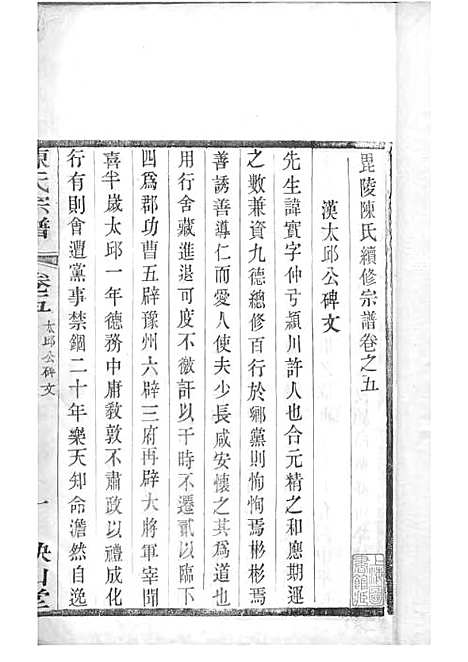 毘陵陳氏續修宗譜卷之五
漢太邱公碑文
先生諱寔字仲弓潁川許人也含元精之和應期運
之數兼資九德總修百行於鄉黨則恂恂焉彬彬焉
善誘善導仁而愛人使夫少長咸安懷之其為道也
用行舍藏進退可度不徼訐以干時不遷貳以臨下
四為郡功曹五辟豫州六辟三府再辟大將軍宰聞
喜半歲太邱一年德務中庸敎敦不肅政以禮成化
行有則會遭黨事禁錮二十年樂天知命澹然自逸
陳氏宗譜
卷五
太邱公碑文
一
映山堂